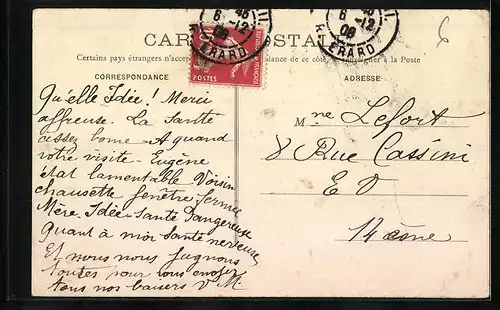 CARTE POSTALE
Certains pays étrangers n'accep dance de ce côté, se renseigner à la Poste
CORRESPONDANCE
ADRESSE
POSTES
6 -12
09
ERARD
6 -12
09
ERARD
6
Qu'elle Idée! Merci
affreuse. La Sante
assez bonne - A quand
votre visite - Eugène
état lamentable Voisin
chaussette fenêtre fermée
Mère Idée - Santé Dangereuse
Quant à moi santé nerveuse
Et nous nous
toutes pour vous envoyer
tous nos baisers V M.
Mme Lefort
8 Rue Cassini
E V